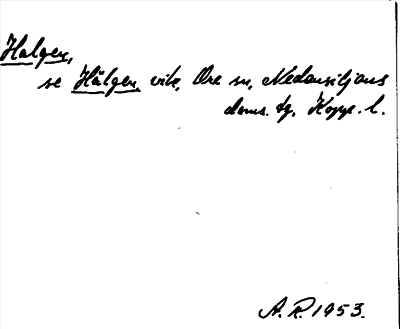 Halgen,
se Hälgen vik, Ore sn, Nedansiljans
doms. tg, Kopp. l.
A. R. 1953.